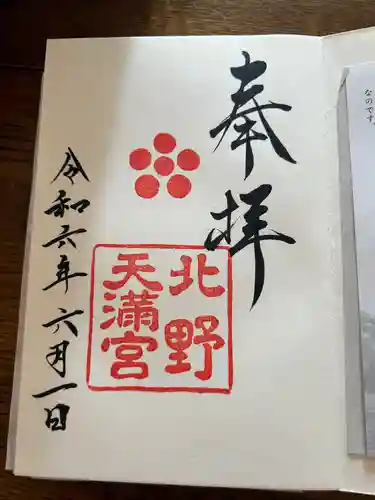 奉拝
北野
天満宮
令和六年六月一日
なのです。